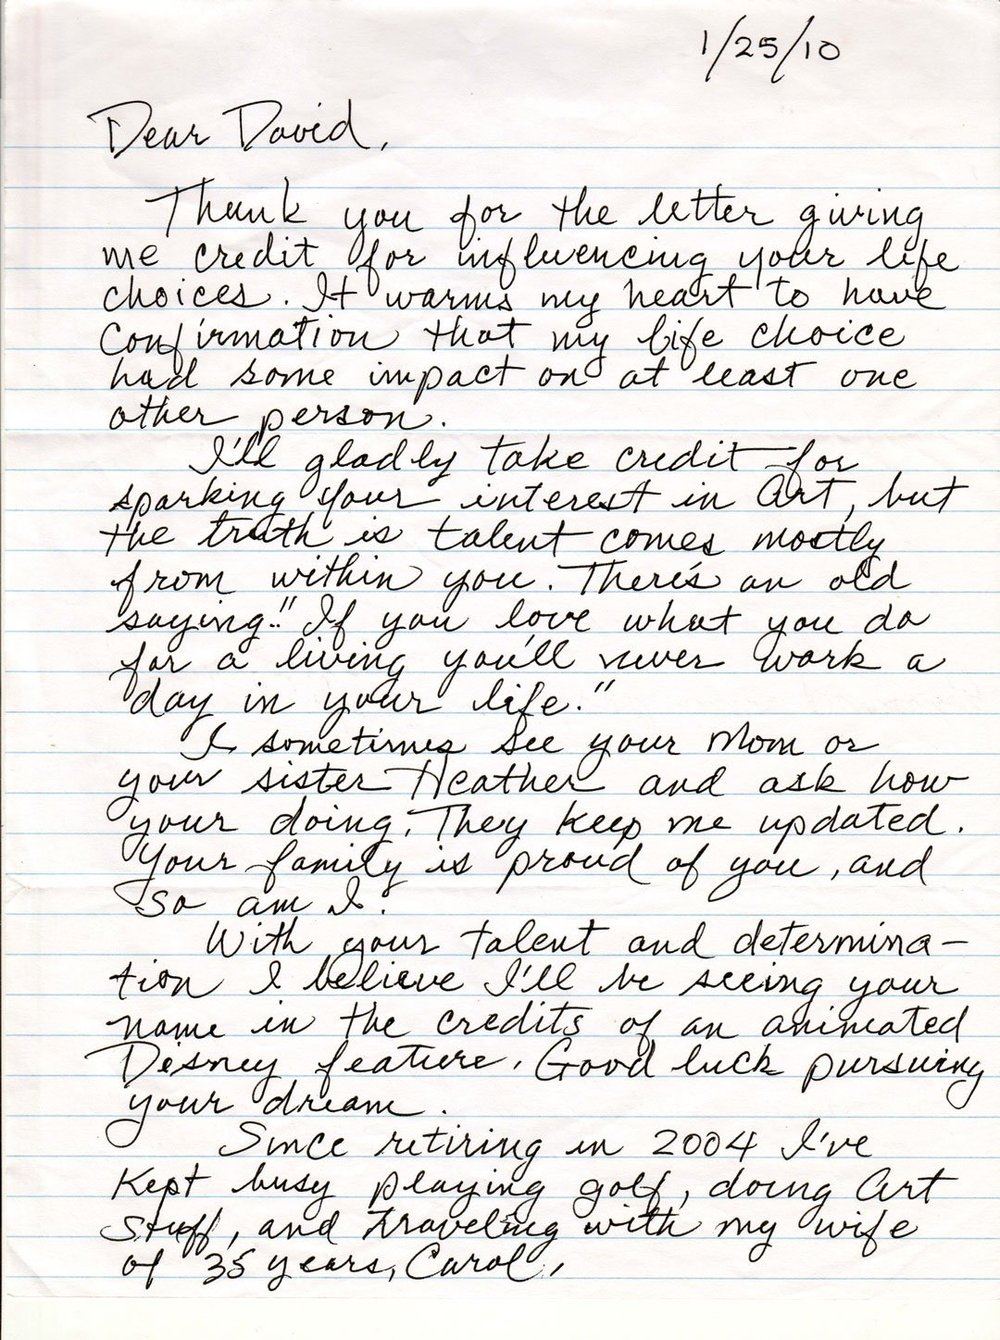 1/25/10
Dear David,
Thank you for the letter giving
me credit for influencing your life
choices. It warms my heart to have
confirmation that my life choice
had some impact on at least one
other person.
I'll gladly take credit for
sparking your interest in Art, but
the truth is talent comes mostly
from within you. There's an old
saying: "If you love what you do
for a living you'll never work a
day in your life."
I sometimes see your Mom or
your sister Heather and ask how
your doing. They keep me updated.
Your family is proud of you, and
so am I.
With your talent and determina-
tion I believe I'll be seeing your
name in the credits of an animated
Disney feature. Good luck pursuing
your dream.
Since retiring in 2004 I've
kept busy playing golf, doing Art
stuff, and traveling with my wife
of 35 years, Carol.